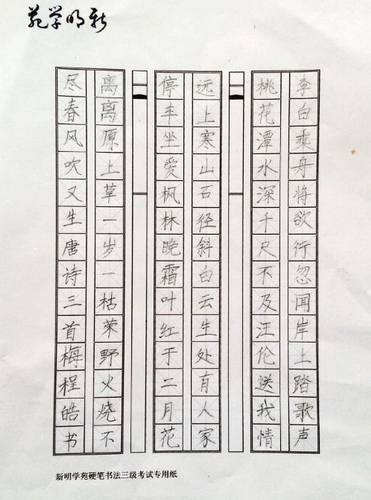 新明学苑
李白乘舟将欲行忽闻岸上踏歌声
桃花潭水深千尺不及汪伦送我情
远上寒山石径斜白云生处有人家
停车坐爱枫林晚霜叶红于二月花
离离原上草一岁一枯荣野火烧不
尽春风吹又生唐诗三首梅程皓书
新明学苑硬笔书法三级考试专用纸